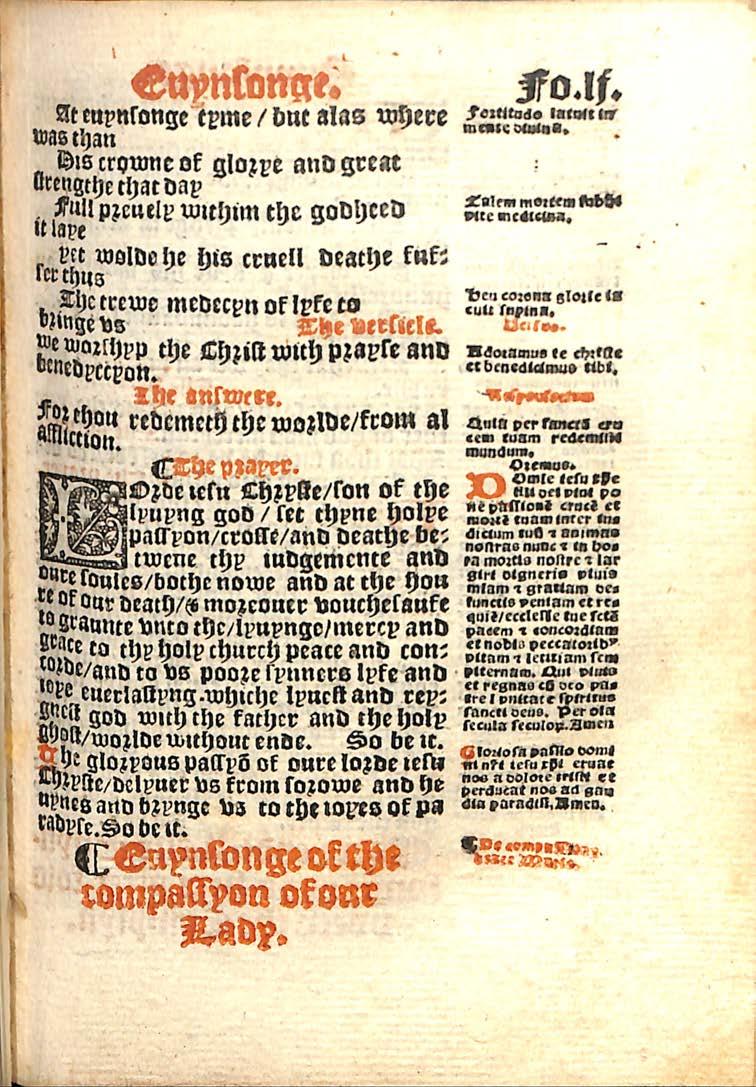 Euynsonge.
Fo.lf.
At euynsonge tyme / but alas where
was than
His crowne of glorye and great
strengthe that day
Full preuely within the godheed
it laye
yet wolde he his cruell deathe suf⸗
fer thus
The trewe medecyn of lyfe to
bringe vs The versicle.
we worshyp the Christ with prayse and
benedyccyon.
The answere.
For thou redemeth the worlde/from al
affliction.
¶The prayer.
LOrde iesu Chryste/son of the
lyuyng god / set thyne holye
passyon/crosse/and deathe be⸗
twene thy iudgemente and
oure soules/bothe nowe and at the hou
re of our death/& moreouer vouchesaufe
to graunte vnto the/lyuynge/mercy and
grace to thy holy church peace and con⸗
corde/and to vs poore synners lyfe and
ioye euerlastyng.whiche lyuest and rey⸗
gnest god with the father and the holy
ghost/worlde without ende. So be it.
The gloryous passyō of oure lorde iesu
Chryste/delyuer vs from sorowe and he
uynes and brynge vs to the ioyes of pa
radyse.So be it.
¶Euynsonge of the
compassyon of our
Lady.
Fortitudo latuit in
mente diuina.
Talem mortem subiit
vite medicina.
Heu corona glorie ia
cuit supina.
Versus.
Adoramus te christe
et benedicimus tibi.
Responsorium
Quia per sanctā cru
cem tuam redemisti
mundum.
Oremus.
Domine iesu xpe
fili dei viui po
ne passionē crucē et
mortē tuam inter iu
dicium tuū ⁊ animas
nostras nunc ⁊ in ho
ra mortis nostre ⁊ lar
giri digneris viuis
miam ⁊ gratiam de
functis veniam et re
quiē/ecclesie tue sctā
pacem ⁊ concordiam
et nobis peccatorib
vitam ⁊ letitiam sem
piternam. Qui viuis
et regnas cū deo pa
tre ī vnitate spiritus
sancti deus. Per oīa
secula seculoꝝ.Amen
Gloriosa passio domi
ni nri iesu xpi eruat
nos a dolore tristi et
perducat nos ad gau
dia paradisi,Amen.